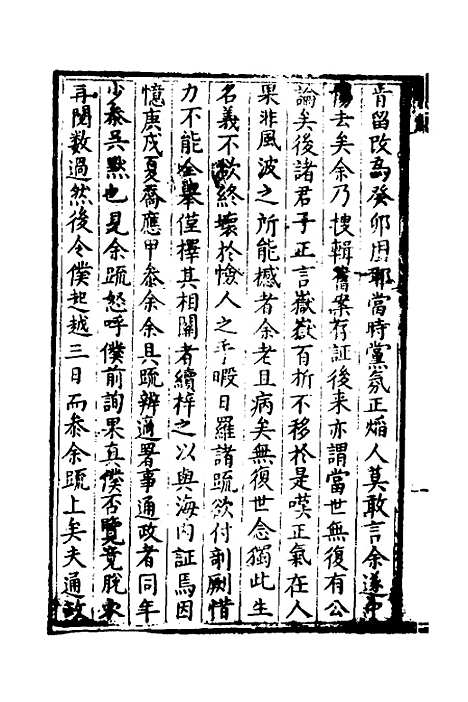 肯留改為癸卯因耶當時黨氛正熖人莫敢言余遂中
傷去矣余乃搜輯舊案存証後来亦謂當世無復有公
論矣後諸君子正言嶽嶽百折不移於是嘆正氣在人
果非風波之所能撼者余老且病矣無復世念獨此生
名義不欲終壞於憸人之手暇日羅諸疏欲付剞劂惜
力不能全舉僅擇其相關者續梓之以與海内証焉因
憶庚戌夏喬應甲叅余余具疏辨適署事通政者同年
少叅吳黙也見余疏怒呼僕前詢果真僕否覽竟脫
再閱数過然後令僕起越三日而叅余疏上矣夫通政